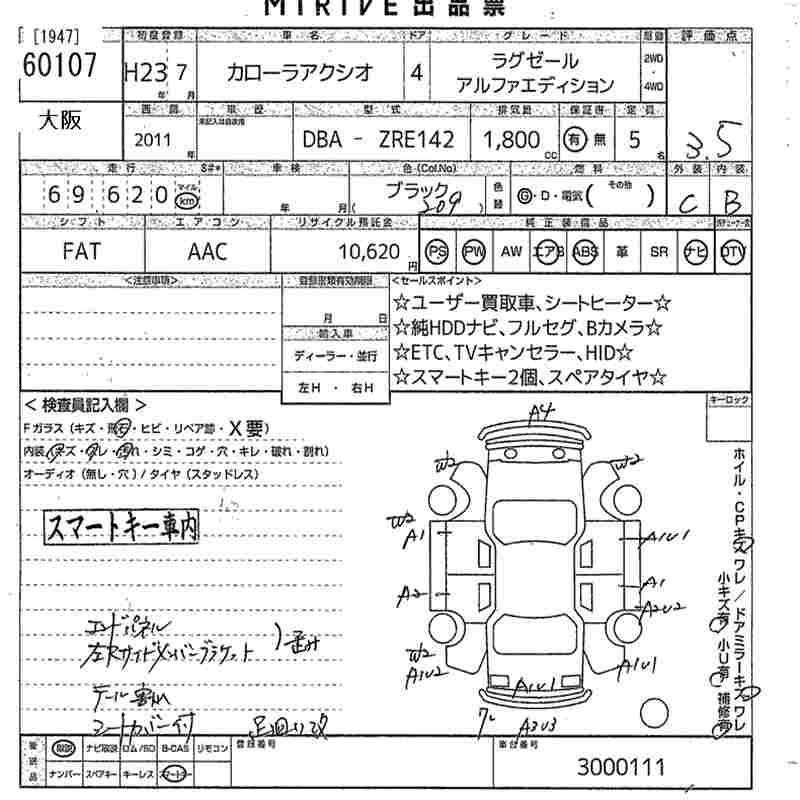 MIRIVE出品票
[1947]
60107
初度登録 車名 ドア グレード 評価点
H23 7 カローラアクシオ 4 ラグゼール
アルファエディション
2WD
・
4WD
年 月
大阪
車歴 型式 排気量 保証書 定員
2011 DBA - ZRE142 1,800 有 無 5 3.5
年 CC 名
走行 S#* 車検 色(Col.No) 燃料 外装 内装
69620 マイル km 年 月 ブラック 209 色替 G・D・電気( その他 ) C B
シフト エアコン リサイクル預託金 純正装備品
FAT AAC 10,620円 PS PW AW エアB ABS 革 SR ナビ DTV
<注意事項> 登録書類有効期限 <セールスポイント>
月 日
輸入車
ディーラー・並行
左H ・ 右H
☆ユーザー買取車、シートヒーター☆
☆純HDDナビ、フルセグ、Bカメラ☆
☆ETC、TVキャンセラー、HID☆
☆スマートキー2個、スペアタイヤ☆
キーロック
<検査員記入欄>
Fガラス(キズ・飛石・ヒビ・リペア跡・X要)
内装(キズ・スレ・汚れ・シミ・コゲ・穴・キレ・破れ・割れ)
オーディオ(無し・穴)/タイヤ(スタッドレス)
スマートキー車内
A4
W2 W2
W2
A1 A1U1
A2 A1
A2U2
W2
A1U2 A1U1
A1U1
A3U3
ホイル・CPキズ ワレ/ドアミラーキズ ワレ
小キズ有 小U有 補修有
エンドパネル
左Rサイドメンバーブラケット )歪み
テール割れ
シートカバー付 足回り改
後送品 取説 ナビ取説 ロム/SD B-CAS リモコン 登録番号 車台番号
ナンバー スペアキー キーレス スマートキー 3000111